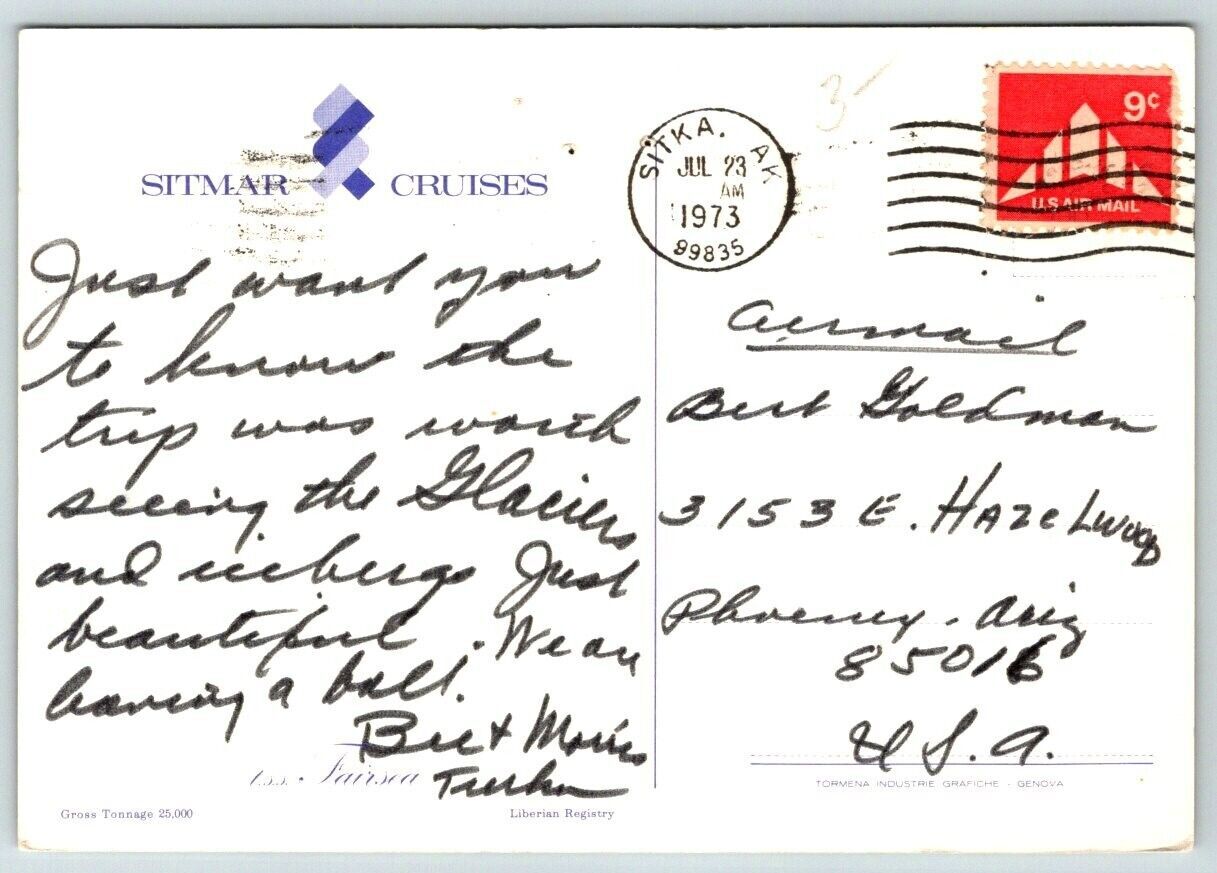 SITMAR CRUISES
Just want you
to know the
trip was worth
seeing the Glaciers
and icebergs Just
beautiful. We are
having a ball.
Be + Morris
t.s.s. Fairsea
Gross Tonnage 25,000
Liberian Registry
3-
SITKA, AK
JUL 23
AM
1973
99835
9c
U.S. AIR MAIL
Airmail
Bert Goldman
3153 E. Hazelwood
Phoenix, Ariz
85016
U S. A.
TORMENA INDUSTRIE GRAFICHE - GENOVA